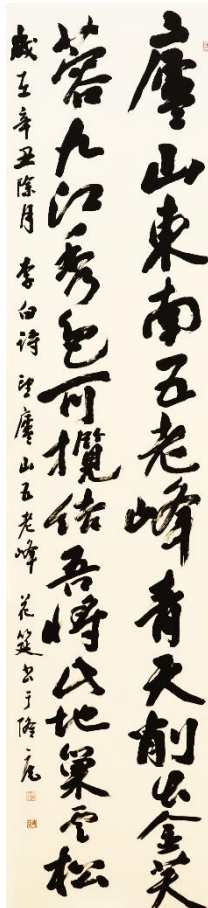 廬山東南五老峰青天削出金芙
蓉九江秀色可攬結吾將此地巢雲松
歲在辛丑除月 李白詩 望廬山五老峰 花筵書于